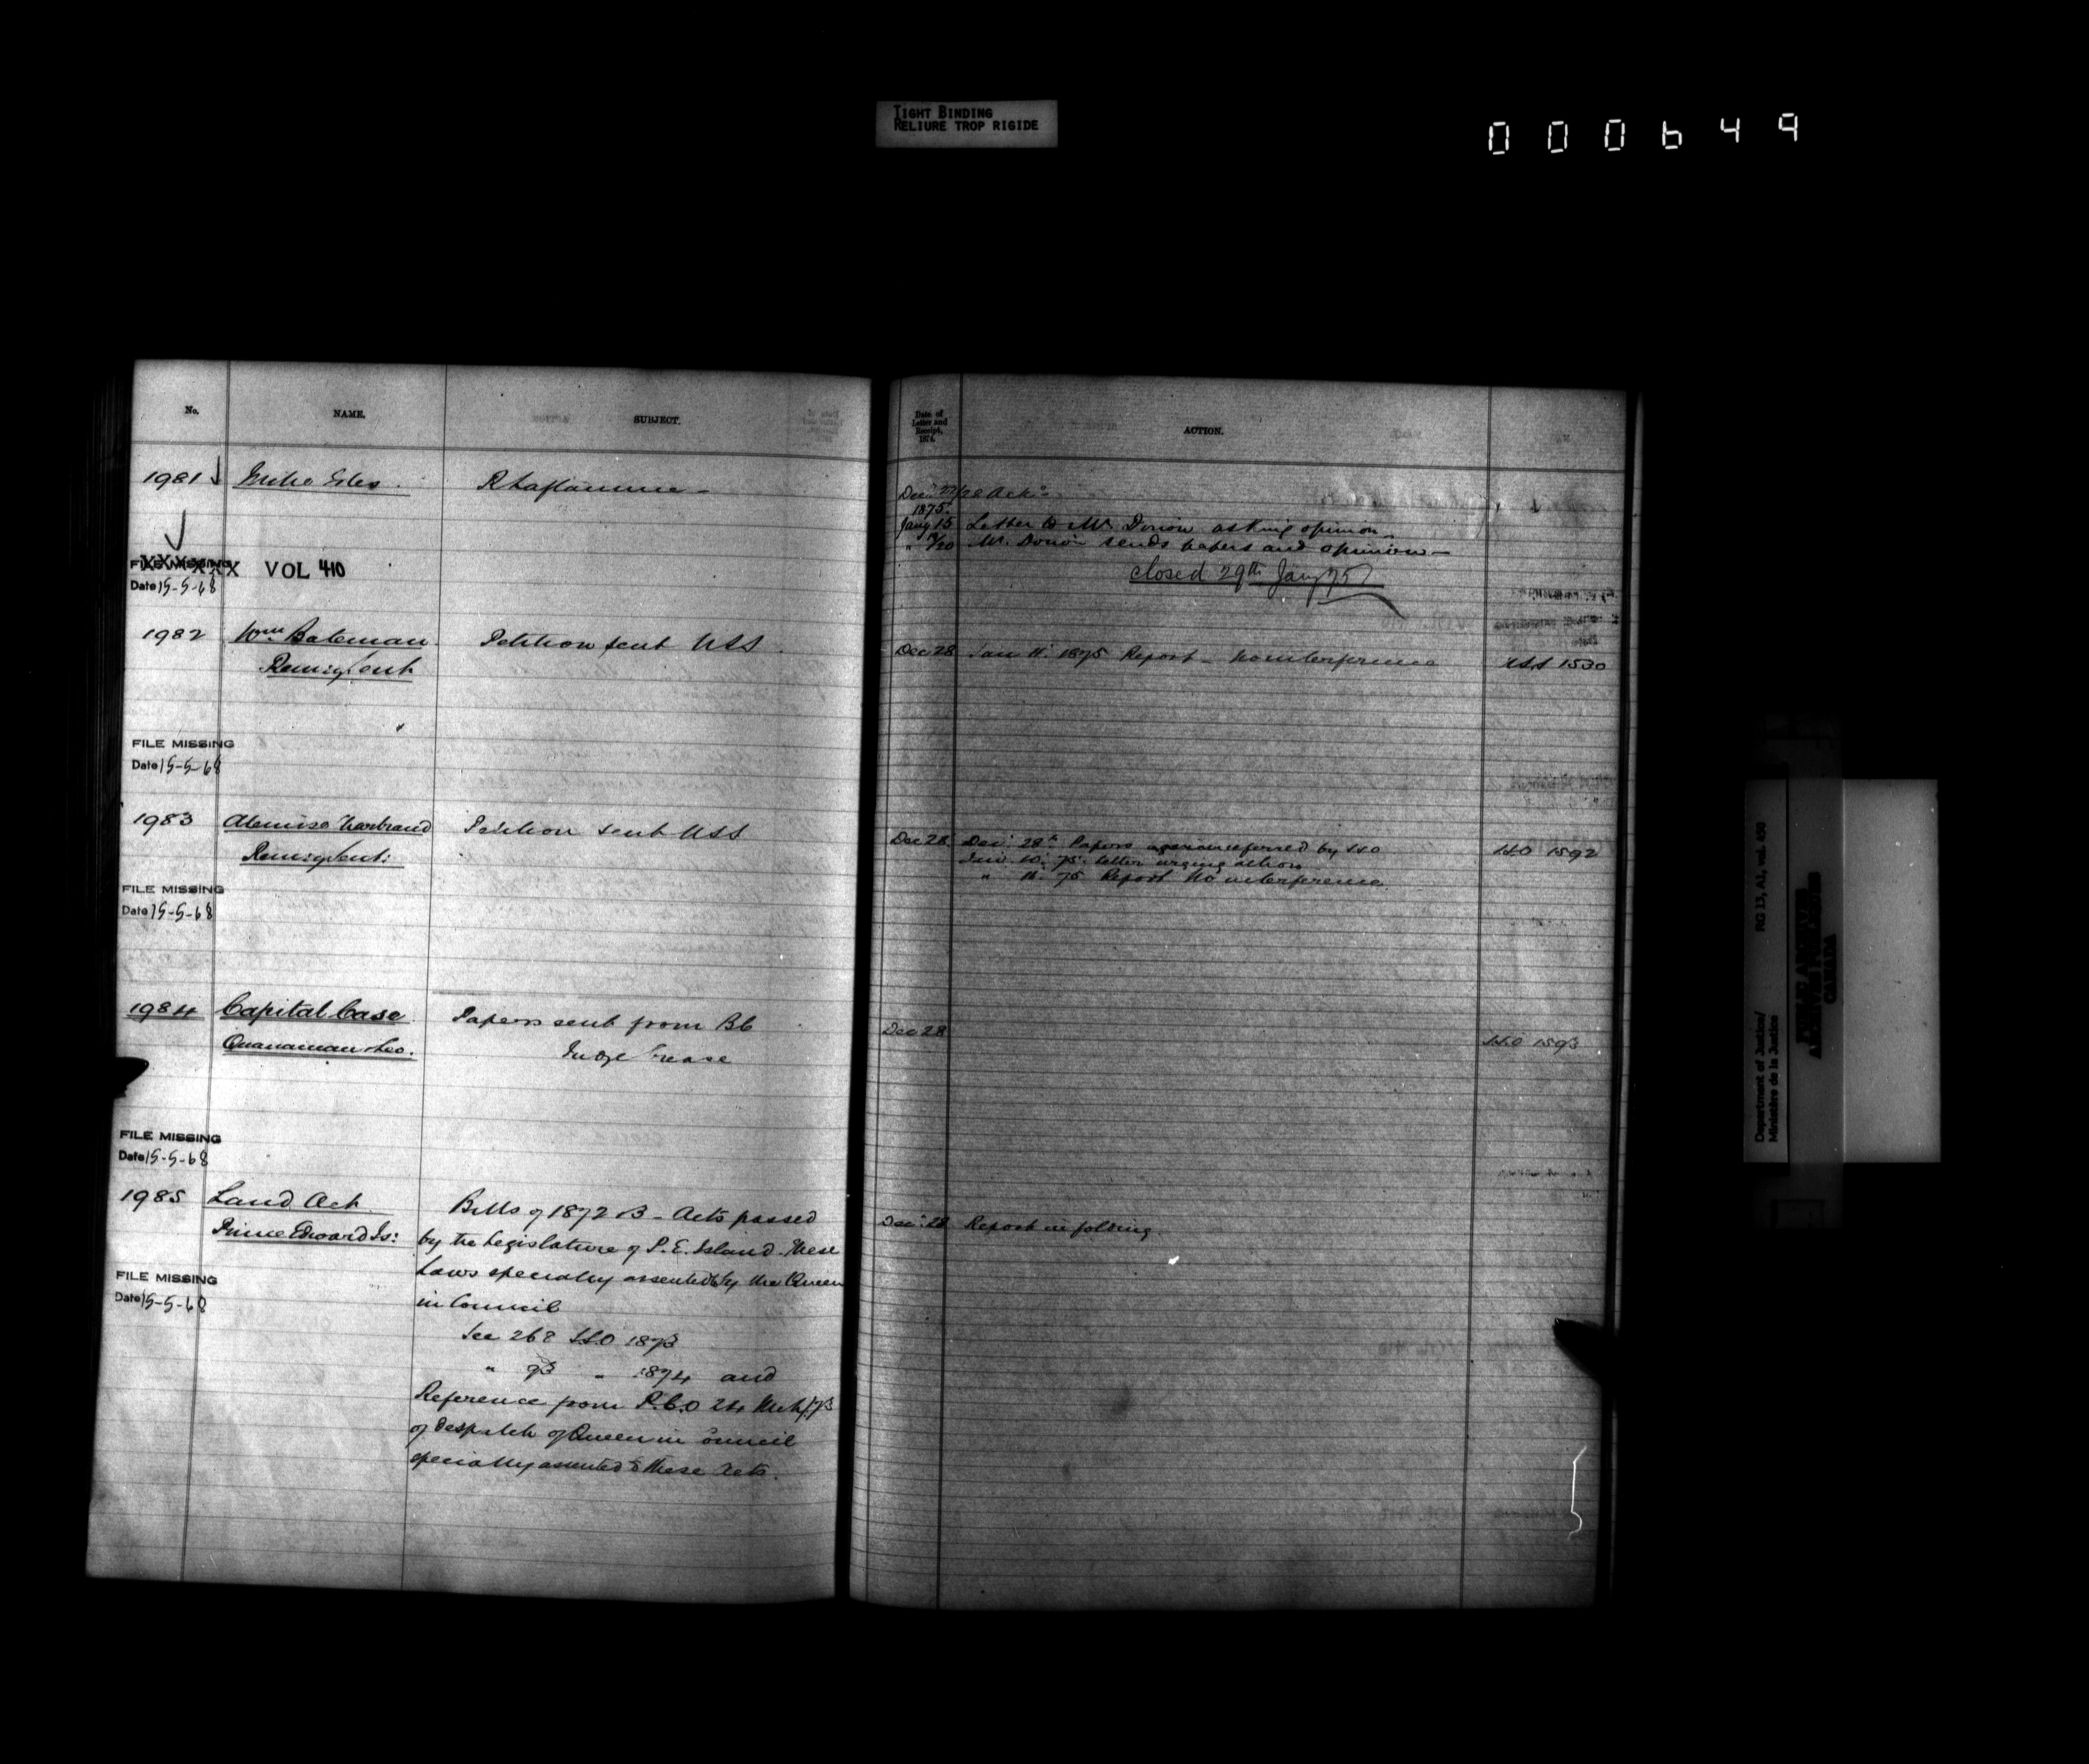 TIGHT BINDING
RELIURE TROP RIGIDE
000649
No. NAME. SUBJECT.
1981 Mile Isles. R Laflamme -
FILE MISSING XXXXXX VOL 410
Date 15-5-68
1982 Wm Bateman Petition sent USS.
Peniyent
FILE MISSING
Date 15-5-68
1983 Petition sent USS
FILE MISSING
Date 15-5-68
1984 Capital Case Papers sent from BC
Judge Crease
FILE MISSING
Date 15-5-68
1985 Land Act. Bills of 1872 & 3 - Acts passed
Prince Edward Is: by the Legislature of P. E. Island. These
Laws specially assented to by the Queen
FILE MISSING
Date 15-5-68
in Council
See 268 SSO 1873
" 93 " 1874 and
Reference from P.C.O 24 Mch/73
of despatch of Queen in Council
specially assented to these Acts.
Date of
Letter and
Receipt,
1874.
ACTION.
1875.
Jany 15 Letter to Mr. Dorion asking opinion
" 19/20 Mr. Dorion sends papers and opinion -
closed 29th Jany 75
Dec 28 Jan 11: 1875 Report - no interference USS 1530
Dec 28 Dec: 28th Papers again referred by SSO SSO 1592
letter urging action
" 11. 75 Report no interference
Dec 28 SSO 1593
Dec: 28 Report in folding.
Department of Justice/
Ministère de la Justice
RG 13, A1, vol. 450
PUBLIC ARCHIVES
ARCHIVES PUBLIQUES
CANADA